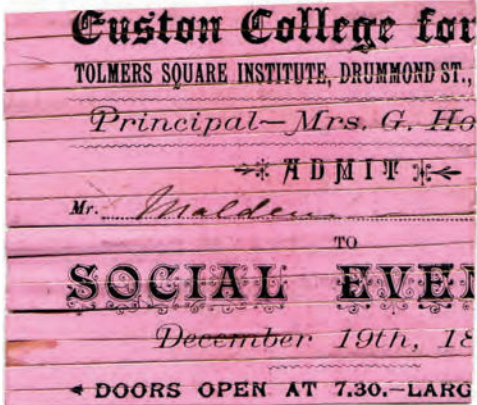 Euston College for
TOLMERS SQUARE INSTITUTE, DRUMMOND ST.,
Principal—Mrs. G. Ho
ADMIT
Mr. Malden
TO
SOCIAL EVEN
December 19th, 18
DOORS OPEN AT 7.30.—LARG